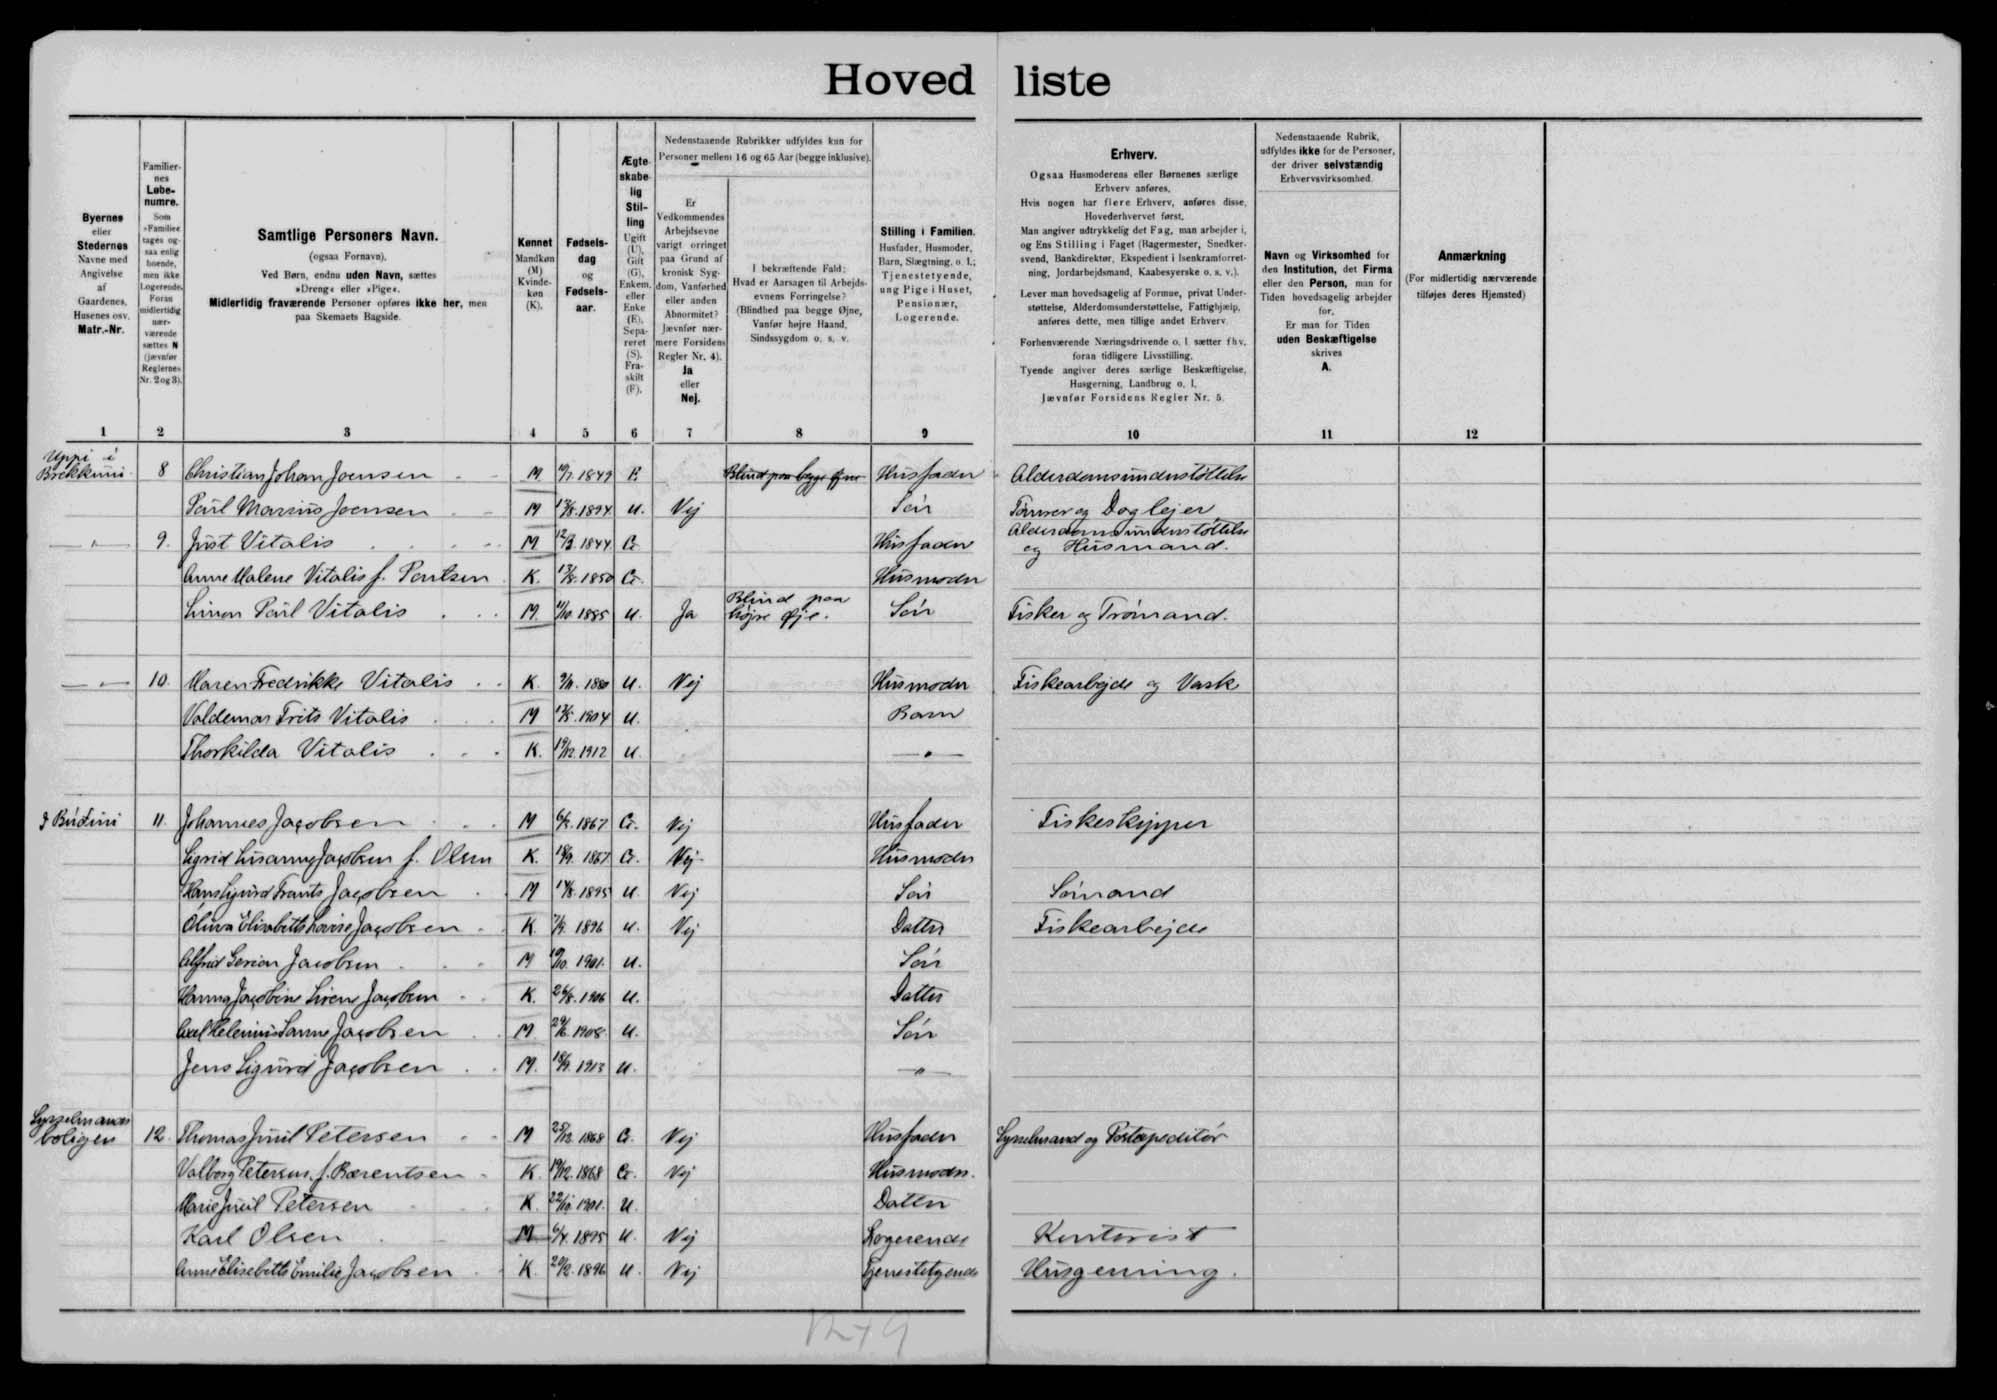 Hoved liste
Byernes
eller
Stedernes
Navne med
Angivelse
af
Gaardenes,
Husenes osv.
Matr.-Nr.
Familier-
nes
Løbe-
numre.
Som
»Familie«
tages og-
saa enlig
boende,
men ikke
Logerende.
Foran
midlertidig
nær-
værende
sættes N
(jævnfør
Reglernes
Nr. 2 og 3).
Samtlige Personers Navn.
(ogsaa Fornavn).
Ved Børn, endnu uden Navn, sættes
»Dreng« eller »Pige«.
Midlertidig fraværende Personer opføres ikke her, men
paa Skemaets Bagside.
Kønnet
Mandkøn
(M)
Kvinde-
køn
(K).
Fødsels-
dag
og
Fødsels-
aar.
Ægte-
skabe-
lig
Stil-
ling
Ugift
(U),
Gift
(G),
Enkem.
eller
Enke
(E),
Sepa-
reret
(S),
Fra-
skilt
(F).
Nedenstaaende Rubrikker udfyldes kun for
Personer mellem 16 og 65 Aar (begge inklusive).
Er
Vedkommendes
Arbejdsevne
varigt orringet
paa Grund af
kronisk Syg-
dom, Vanførhed
eller anden
Abnormitet?
Jævnfør nær-
mere Forsidens
Regler Nr. 4).
Ja
eller
Nej.
I bekræftende Fald:
Hvad er Aarsagen til Arbejds-
evnens Forringelse?
(Blindhed paa begge Øjne,
Vanfør højre Haand,
Sindssygdom o. s. v.
Stilling i Familien.
Husfader, Husmoder,
Barn, Slægtning, o. l.;
Tjenestetyende,
ung Pige i Huset,
Pensionær,
Logerende.
Erhverv.
Ogsaa Husmoderens eller Børnenes særlige
Erhverv anføres.
Hvis nogen har flere Erhverv, anføres disse,
Hovederhvervet først.
Man angiver udtrykkelig det Fag, man arbejder i,
og Ens Stilling i Faget (Bagermester, Snedker-
svend, Bankdirektør, Ekspedient i Isenkramforret-
ning, Jordarbejdsmand, Kaabesyerske o. s. v.).
Lever man hovedsagelig af Formue, privat Under-
støttelse, Alderdomsunderstøttelse, Fattighjælp,
anføres dette, men tillige andet Erhverv.
Forhenværende Næringsdrivende o. l. sætter fhv.
foran tidligere Livsstilling.
Tyende angiver deres særlige Beskæftigelse,
Husgerning, Landbrug o. l.
Jævnfør Forsidens Regler Nr. 5.
Nedenstaaende Rubrik,
udfyldes ikke for de Personer,
der driver selvstændig
Erhvervsvirksomhed.
Navn og Virksomhed for
den Institution, det Firma
eller den Person, man for
Tiden hovedsagelig arbejder
for.
Er man for Tiden
uden Beskæftigelse
skrives
A.
Anmærkning
(For midlertidig nærværende
tilføjes deres Hjemsted)
1 2 3 4 5 6 7 8 9 10 11 12
Uppi i
Brekkuni 8 Christian Johan Joensen M 1849 E. Blind paa begge Øjne Husfader Alderdomsunderstøttelse
Paul Marius Joensen M 1894 U. Nej Søn Tømrer og Daglejer
— " — 9. Just Vitalis M 1844 G. Husfader Alderdomsunderstøttelse
og Husmand.
Anne Malene Vitalis f. Poulsen K. 1850 G. Husmoder
Simon Paul Vitalis M. 1885 U. Ja Blind paa
højre Øje. Søn Fisker og Tromand.
— " — 10. Maren Fredrikke Vitalis K. 1880 U. Nej Husmoder Fiskearbejde og Vask
Valdemar Frits Vitalis M 1904 U. Barn
Thorkilda Vitalis K. 19/12. 1912 U. — " —
I Búðini 11. Johannes Jacobsen M 1867 G. Nej Husfader Fiskeskipper
Sigrid Susanna Jacobsen f. Olsen K. 1867 G. Nej Husmoder
Hans Sigurd Frants Jacobsen M 1895 U. Nej Søn Sømand
Oliva Elisabeth Lovise Jacobsen K. 1896 U. Nej Datter Fiskearbejde
Alfred Jacobsen M 1901. U. Søn
Hanna Jacobine Sirene Jacobsen K. 26/8. 1906 U. Datter
Axel Jacobsen M. 1908. U. Søn
Jens Sigurd Jacobsen M. 1913 U. — " —
Sysselmands
boligen 12. Thomas Juul Petersen M 1868 G. Nej Husfader Sysselmand og Postexpeditør
Valborg Petersen f. Bærentsen K. 19/12. 1868 G. Nej Husmoder.
Marie Juul Petersen K. 22/10. 1901. U. Datter
Karl Olsen M 1895 U. Nej Logerende Kontorist
Anne Elisabeth Emilie Jacobsen K. 1896 U. Nej Tjenestetyende Husgerning.
12+9